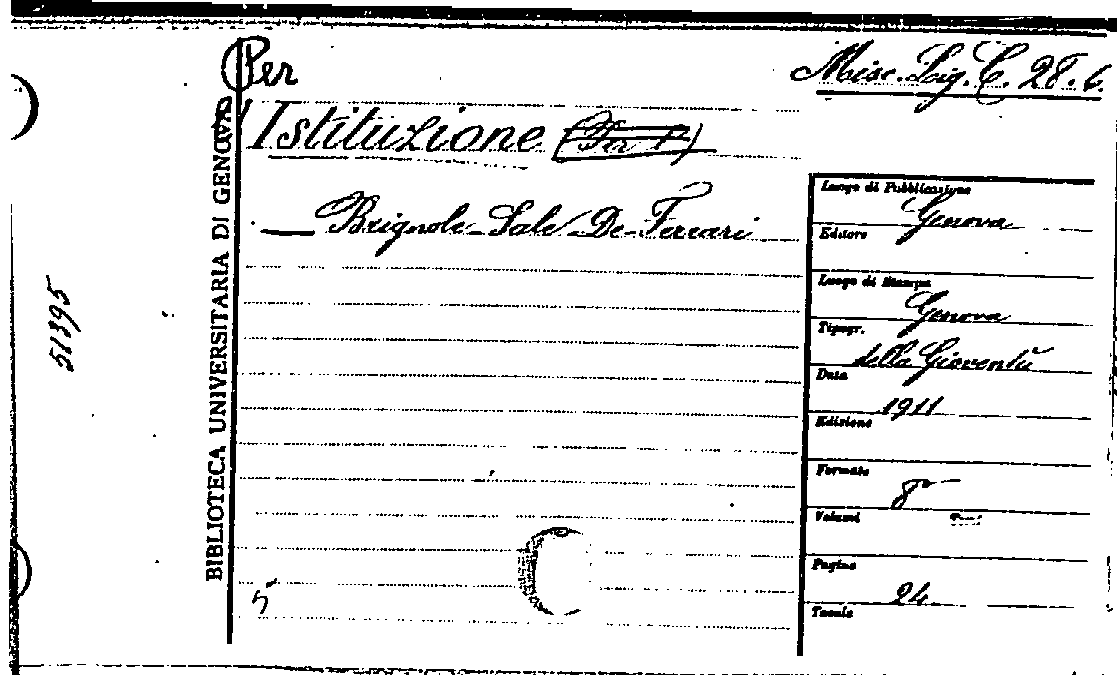 Per
Misc. Lig. C. 28. 6.
l'Istituzione (Per l')
— Brignole-Sale De-Ferrari
BIBLIOTECA UNIVERSITARIA DI GENOVA
51395
Luogo di Pubblicazione
Genova
Editore
Luogo di Stampa
Genova
Tipogr.
della Gioventù
Data
1911
Edizione
Formato
8°
Volumi Tomi
Pagine
24
Tavole
5